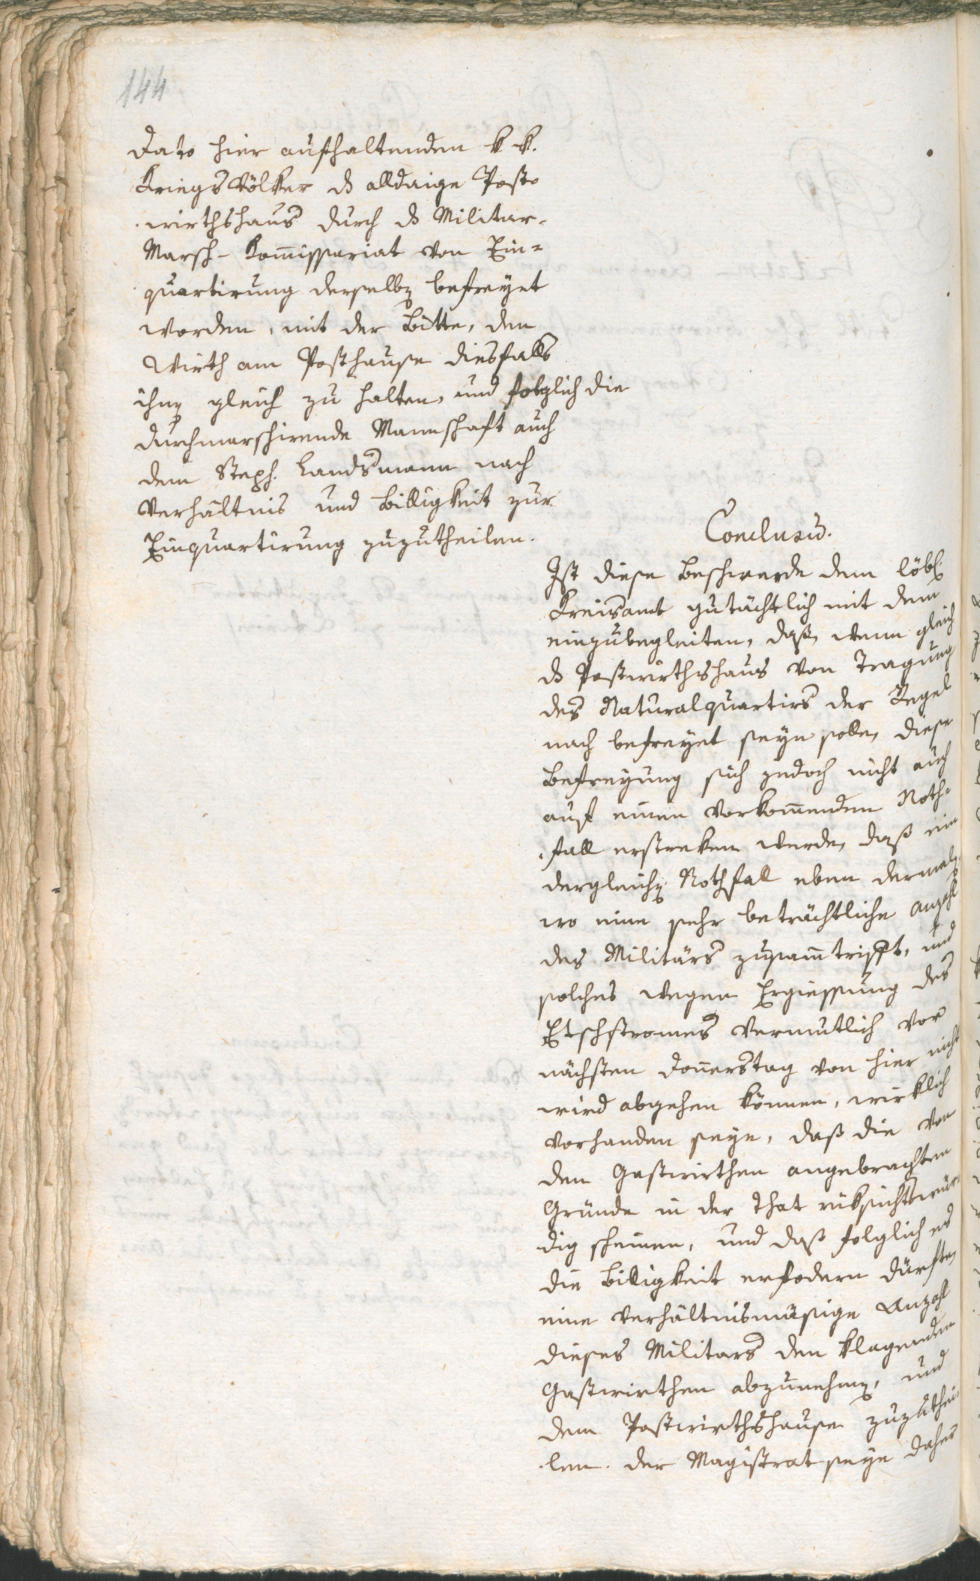 144
Dato hier aufhaltenden k k.
Kriegsvölker ds alldaige Post-
wirthshaus durch ds Militar-
Marsch- Kom̄issariat von Ein-
quartirung derselbɳ befreyet
worden, mit der Bitte, den
Wirth am Posthause diesfalls
ihnɳ gleich zu halten, und folglich die
durchmarschirende Mannschaft auch
dem Steph. Landsmann nach
Verhältnis und Billigkeit zur
Einquartirung zuzutheilen.
Conclusu͞.
Ist diese Beschwerde dem löbl.
Kreisamt gutächtlich mit dem
einzubegleiten, daß, wenn gleich
ds Postwirthshaus von Tragung
des Naturalquartirs der Regel
nach befreyet seyn solle, diese
Befreyung sich jedoch nicht auch
auf einen vorkom̄enden Noth-
fall erstreken werde, daß ein
dergleichɳ Nothfal eben dermalɳ
wo eine sehr beträchtliche Anzahl
des Militärs zusam̄trifft, und
solches wegen Ergiessung des
Etschstromes vermutlich vor
nächsten Don̄erstag von hier nicht
wird abgehen können, wirklich
vorhanden seye, daß die von
den Gastwirthen angebrachten
Gründe in der That rüksichtswür-
dig scheinen, und daß folglich es
die Billigkeit erfodern dürfte,
eine verhältnismäsige Anzahl
dieses Militars den klagenden
Gastwirthen abzunehmɳ, und
dem Postwirthshause zuzuthei-
len. Der Magistrat seye daher